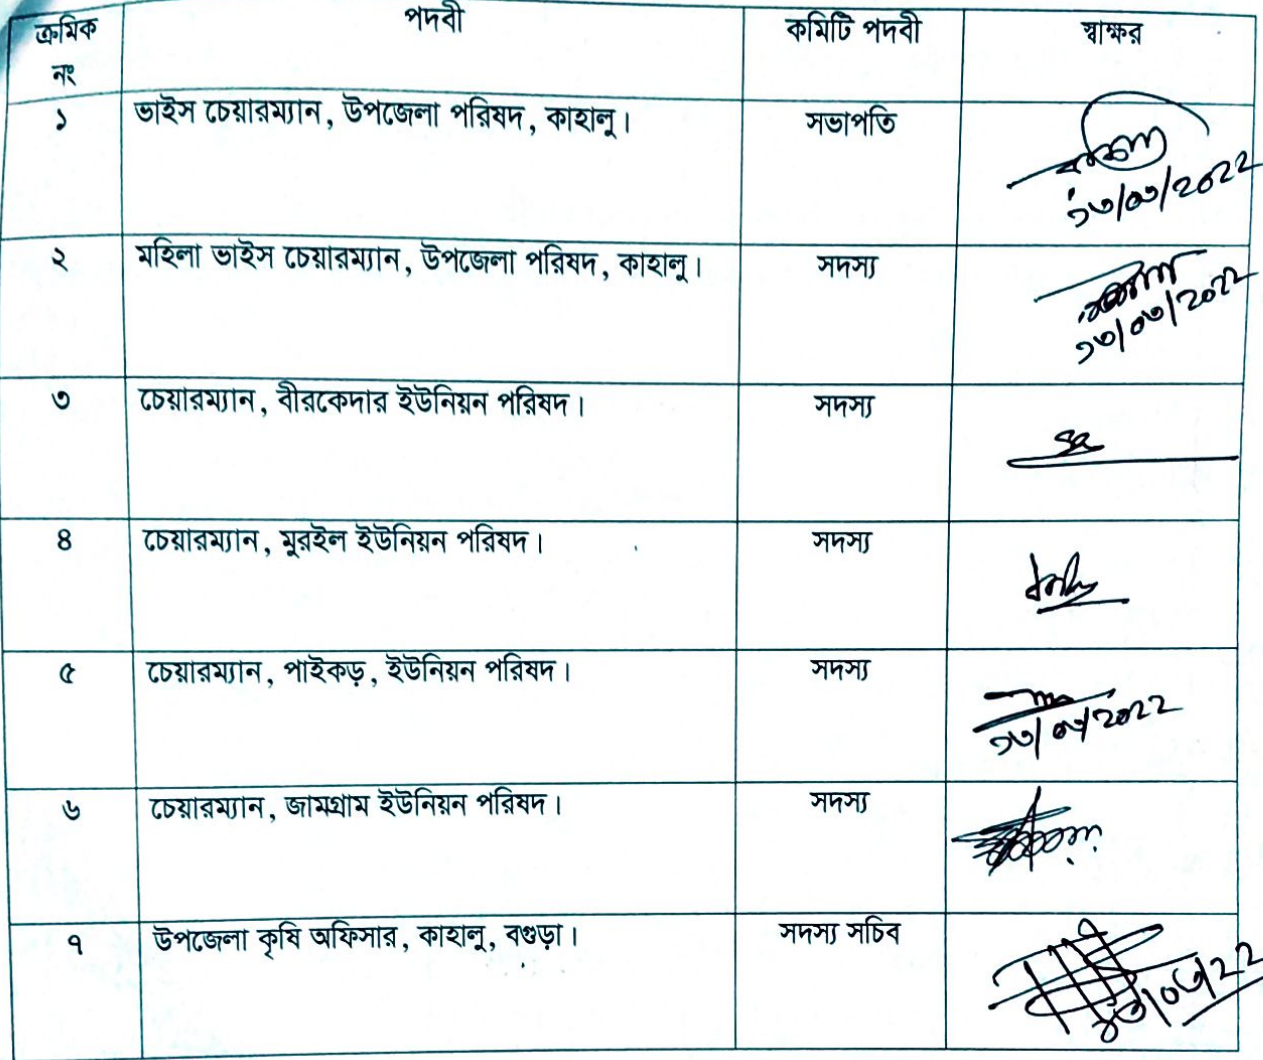 ক্রমিক নং পদবী কমিটি পদবী স্বাক্ষর
১ ভাইস চেয়ারম্যান, উপজেলা পরিষদ, কাহালু। সভাপতি
১৩/০৩/2022
২ মহিলা ভাইস চেয়ারম্যান, উপজেলা পরিষদ, কাহালু। সদস্য
১৩/০৩/2022
৩ চেয়ারম্যান, বীরকেদার ইউনিয়ন পরিষদ। সদস্য
৪ চেয়ারম্যান, মুরইল ইউনিয়ন পরিষদ। সদস্য
৫ চেয়ারম্যান, পাইকড়, ইউনিয়ন পরিষদ। সদস্য
১৩/০৩/2022
৬ চেয়ারম্যান, জামগ্রাম ইউনিয়ন পরিষদ। সদস্য
৭ উপজেলা কৃষি অফিসার, কাহালু, বগুড়া। সদস্য সচিব